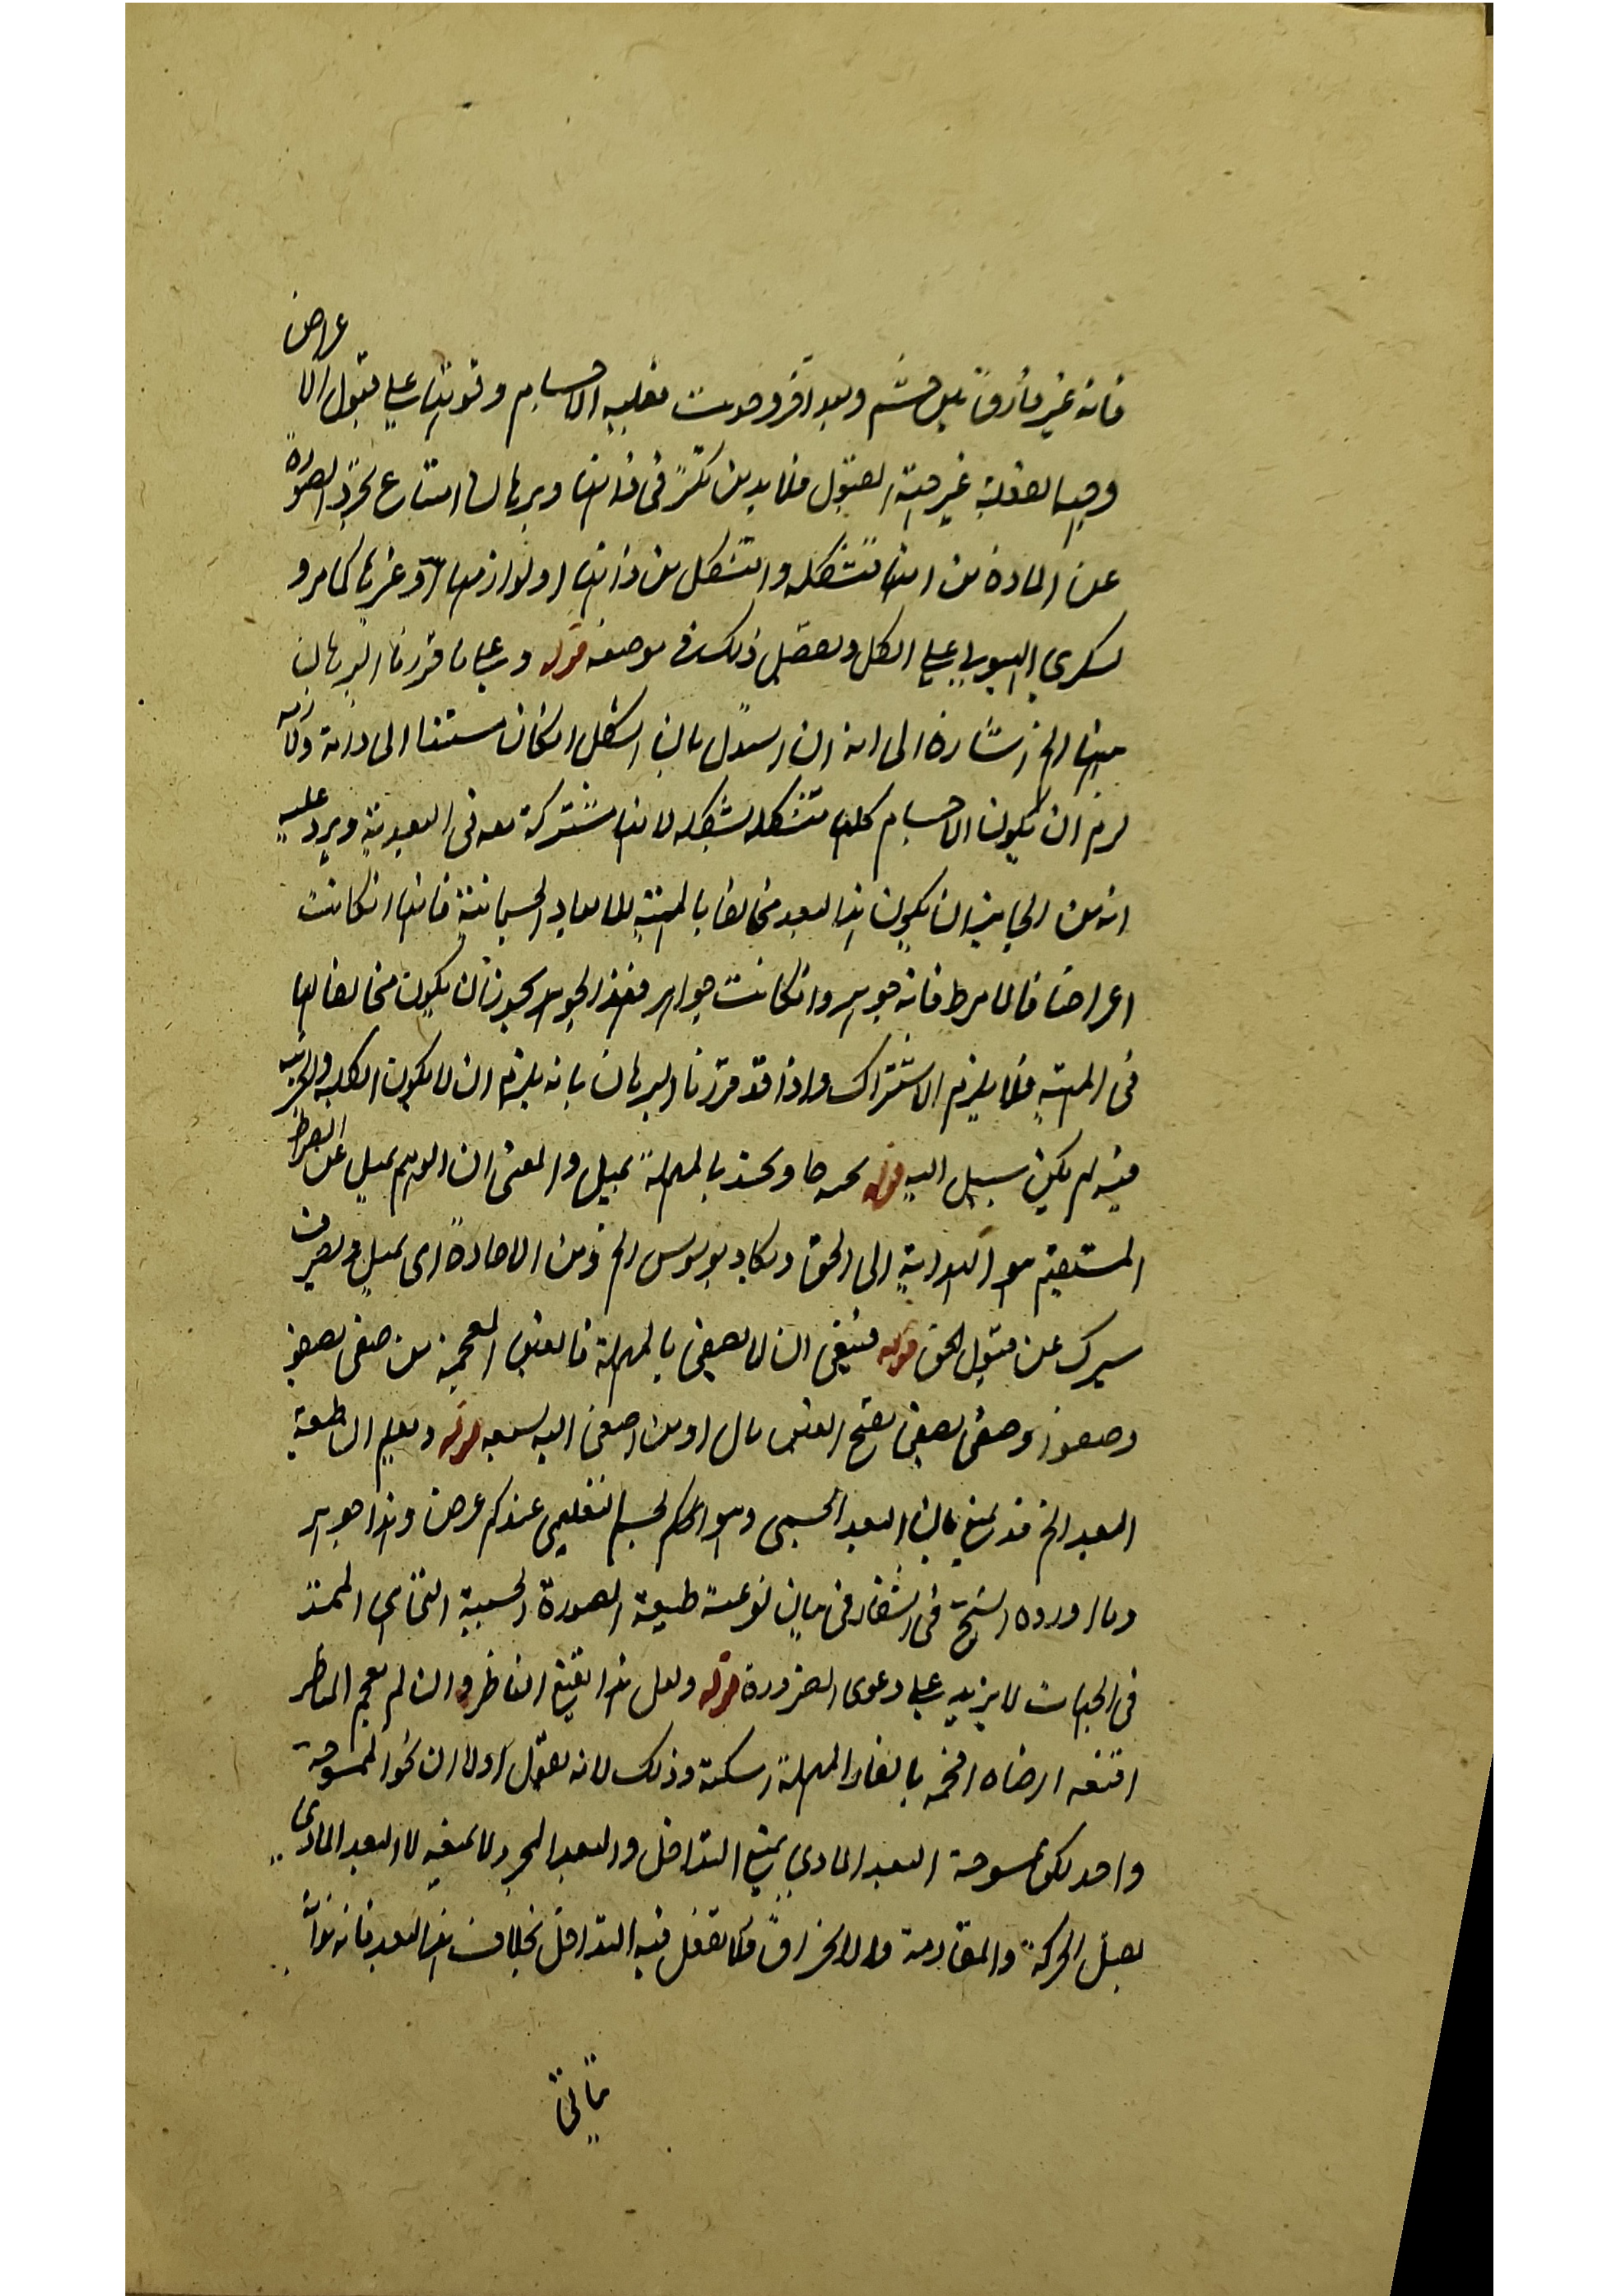 فانه غير مأزوقا بل حشم وبعد اقرو حديث مغلبيه الاجسام وقوتها على قبول الاعراض
وجهة الفعلية غير جهة القبول فلا بد من تكثر في ذاتها وبرهان امتناع تجرد الصورة
عن المادة من انها متشكلة والتشكل من ذاتها او لوازمها او غيرها كما مر و
الهيولى على الكل وتفصيل ذلك في موضعه قوله وعلى ما قررنا البرهان
الخ اشارة الى انه ان استدل بان الشكل ان كان مستندا الى ذاته ولازمه
لزم ان يكون الاجسام كلها متشكلة بشكله لانها مشتركة معه في البعدية ويرد عليه
انه من الجايز ان يكون هذا البعد مخالفا بالمهية للابعاد الجسمانية فانها ان كانت
اعراضا فالامر ظ فانه جوهر وان كانت جواهر فهذا الجوهر يجوز ان يكون مخالفا لها
في المهية فلا يلزم الاشتراك واذا قد قررنا البرهان بانه يلزم ان لا يكون الكلية والجزئية
فيه لم يكن سبيل اليه قوله بالمهملة يميل والمعنى ان الوهم يميل عن الصراط
المستقيم هو الهداية الى الحق الخ من الاحادة اى يميل ويصرف
سيرك عن قبول الحق قوله فينبغي ان لا يصغى بالمهملة فالغين المعجمة من صغى يصغو
وصغوا وصغى يصغى بفتح الغين مال او من اصغى اليه سمعه قوله وبعلم ان طبيعة
البعد الخ قد يمنع بان البعد الجسمي وهو الكم الجسم التعليمي عندكم عرض وهذا جوهر
وما اورده الشيخ في الشفاء في بيان نوعية طبيعة الصورة الجسمية الممتد
في الجهات لا يزيد على دعوى الضرورة قوله ولعل هذا يقنع الناظر وان لم يفحم المناظر
اقنعه ارضاه افحمه بالفاء والمهملة اسكته وذلك لانه يقول اولا ان نحو الممسوحية
واحد لكن ممسوحية البعد المادي يمنع التداخل والبعد المجرد لا يمنعه لا البعد المادي
يقبل الحركة والمقاومة والانخراق فلا يعقل فيه التداخل بخلاف هذا البعد فانه